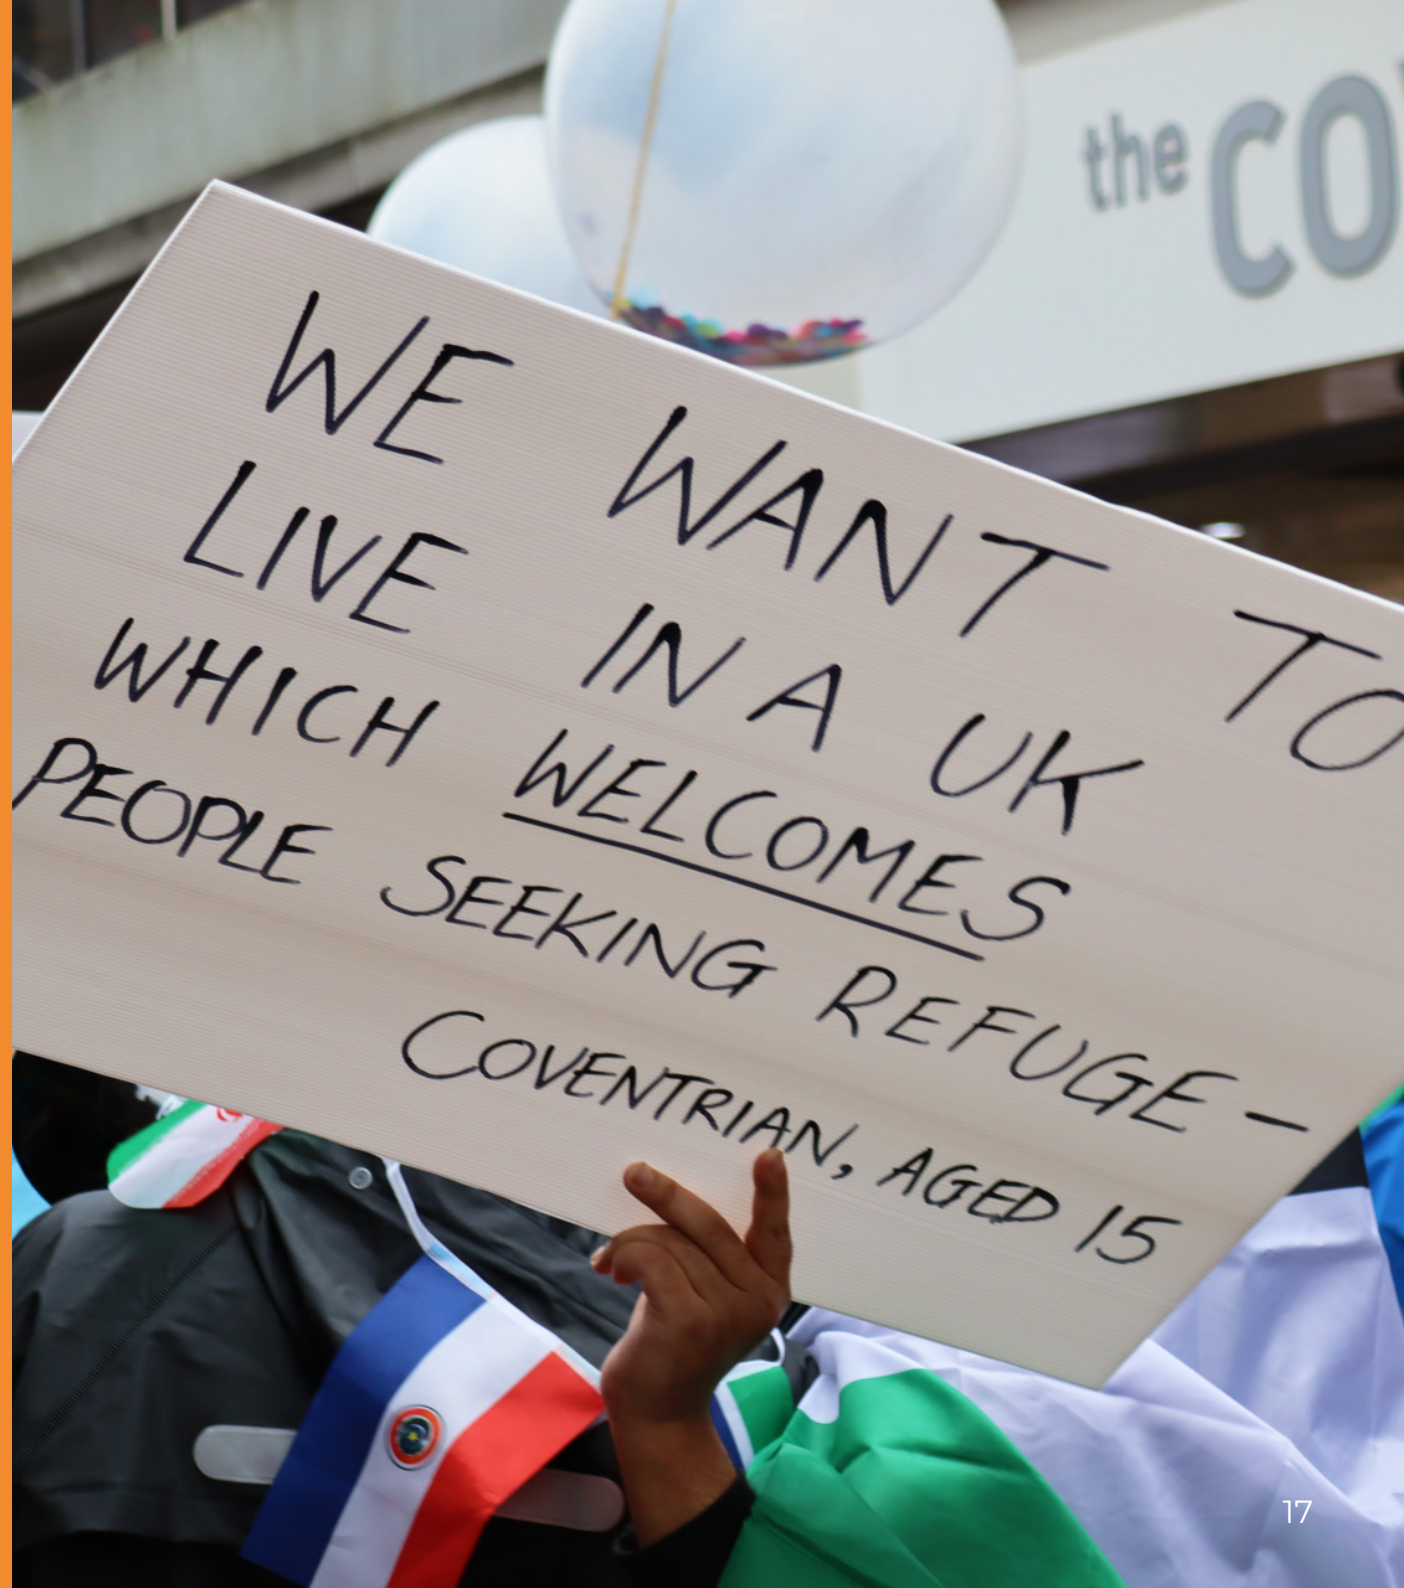 the CO
WE WANT TO
LIVE IN A UK
WHICH WELCOMES
PEOPLE SEEKING REFUGE -
COVENTRIAN, AGED 15
17